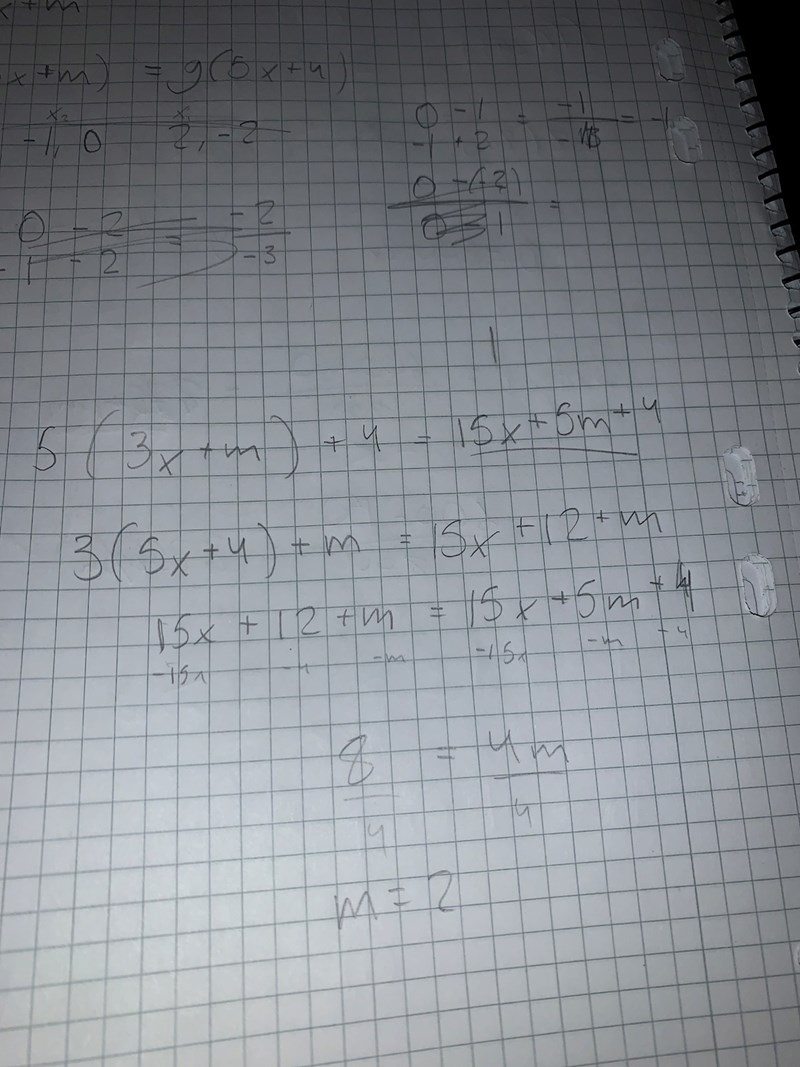 x+m
x+m) = g(5x+4)
x₂ x₁
-1, 0 2, -2
0 - 2 = -2
-1 - 2 -3
0 - 1 = -1 = -1
-1 + 2
0 -(-2) =
1
1
5(3x+m)+4 = 15x+5m+4
3(5x+4)+m = 15x+12+m
15x+12+m = 15x+5m+4
-15x -4 -m -15x -m +4
8 = 4m
4 4
m = 2